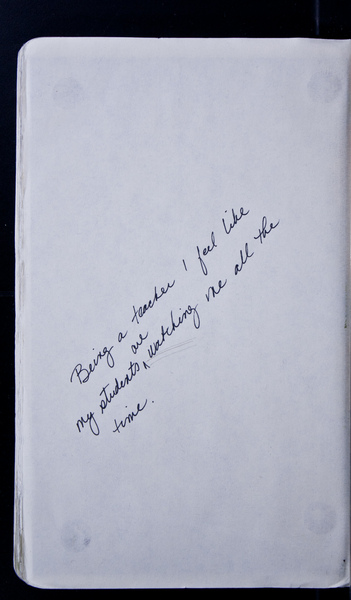 Being a teacher I feel like
my students are watching me all the
time.